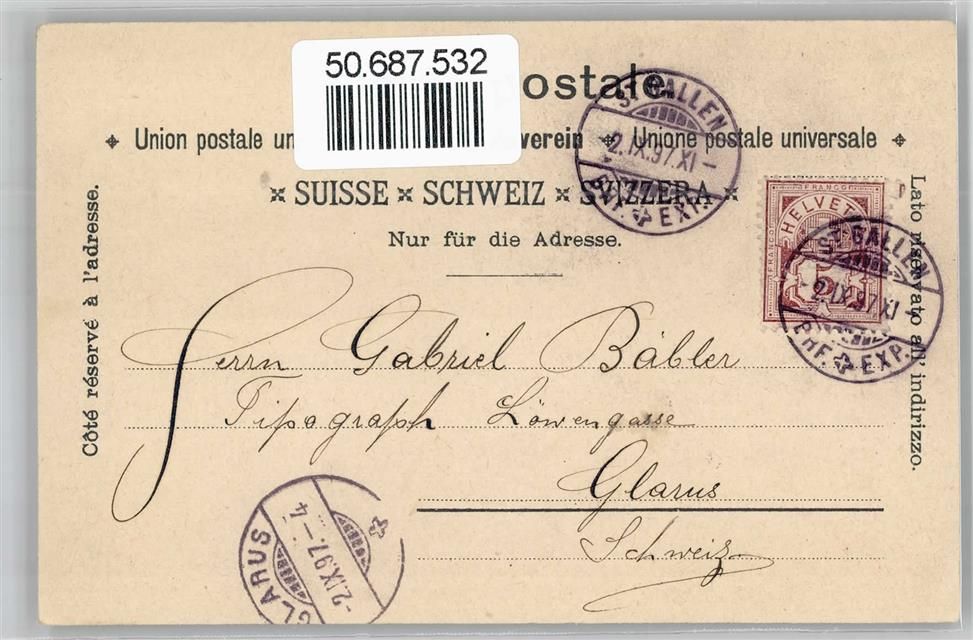 50.687.532
postale
Union postale un verein Unione postale universale
SUISSE SCHWEIZ SVIZZERA
Nur für die Adresse.
Côté réservé à l'adresse.
Lato riservato all' indirizzo.
ST. GALLEN
-2.IX.97.XI-
BRF. EXP.
FRANCO
HELVETIA
5
ST. GALLEN
-2.IX.97.XI-
BRF. EXP.
Herrn Gabriel Bäbler
Tipograph Löwengasse
Glarus
Schweiz
GLARUS
-2.IX.97.-4